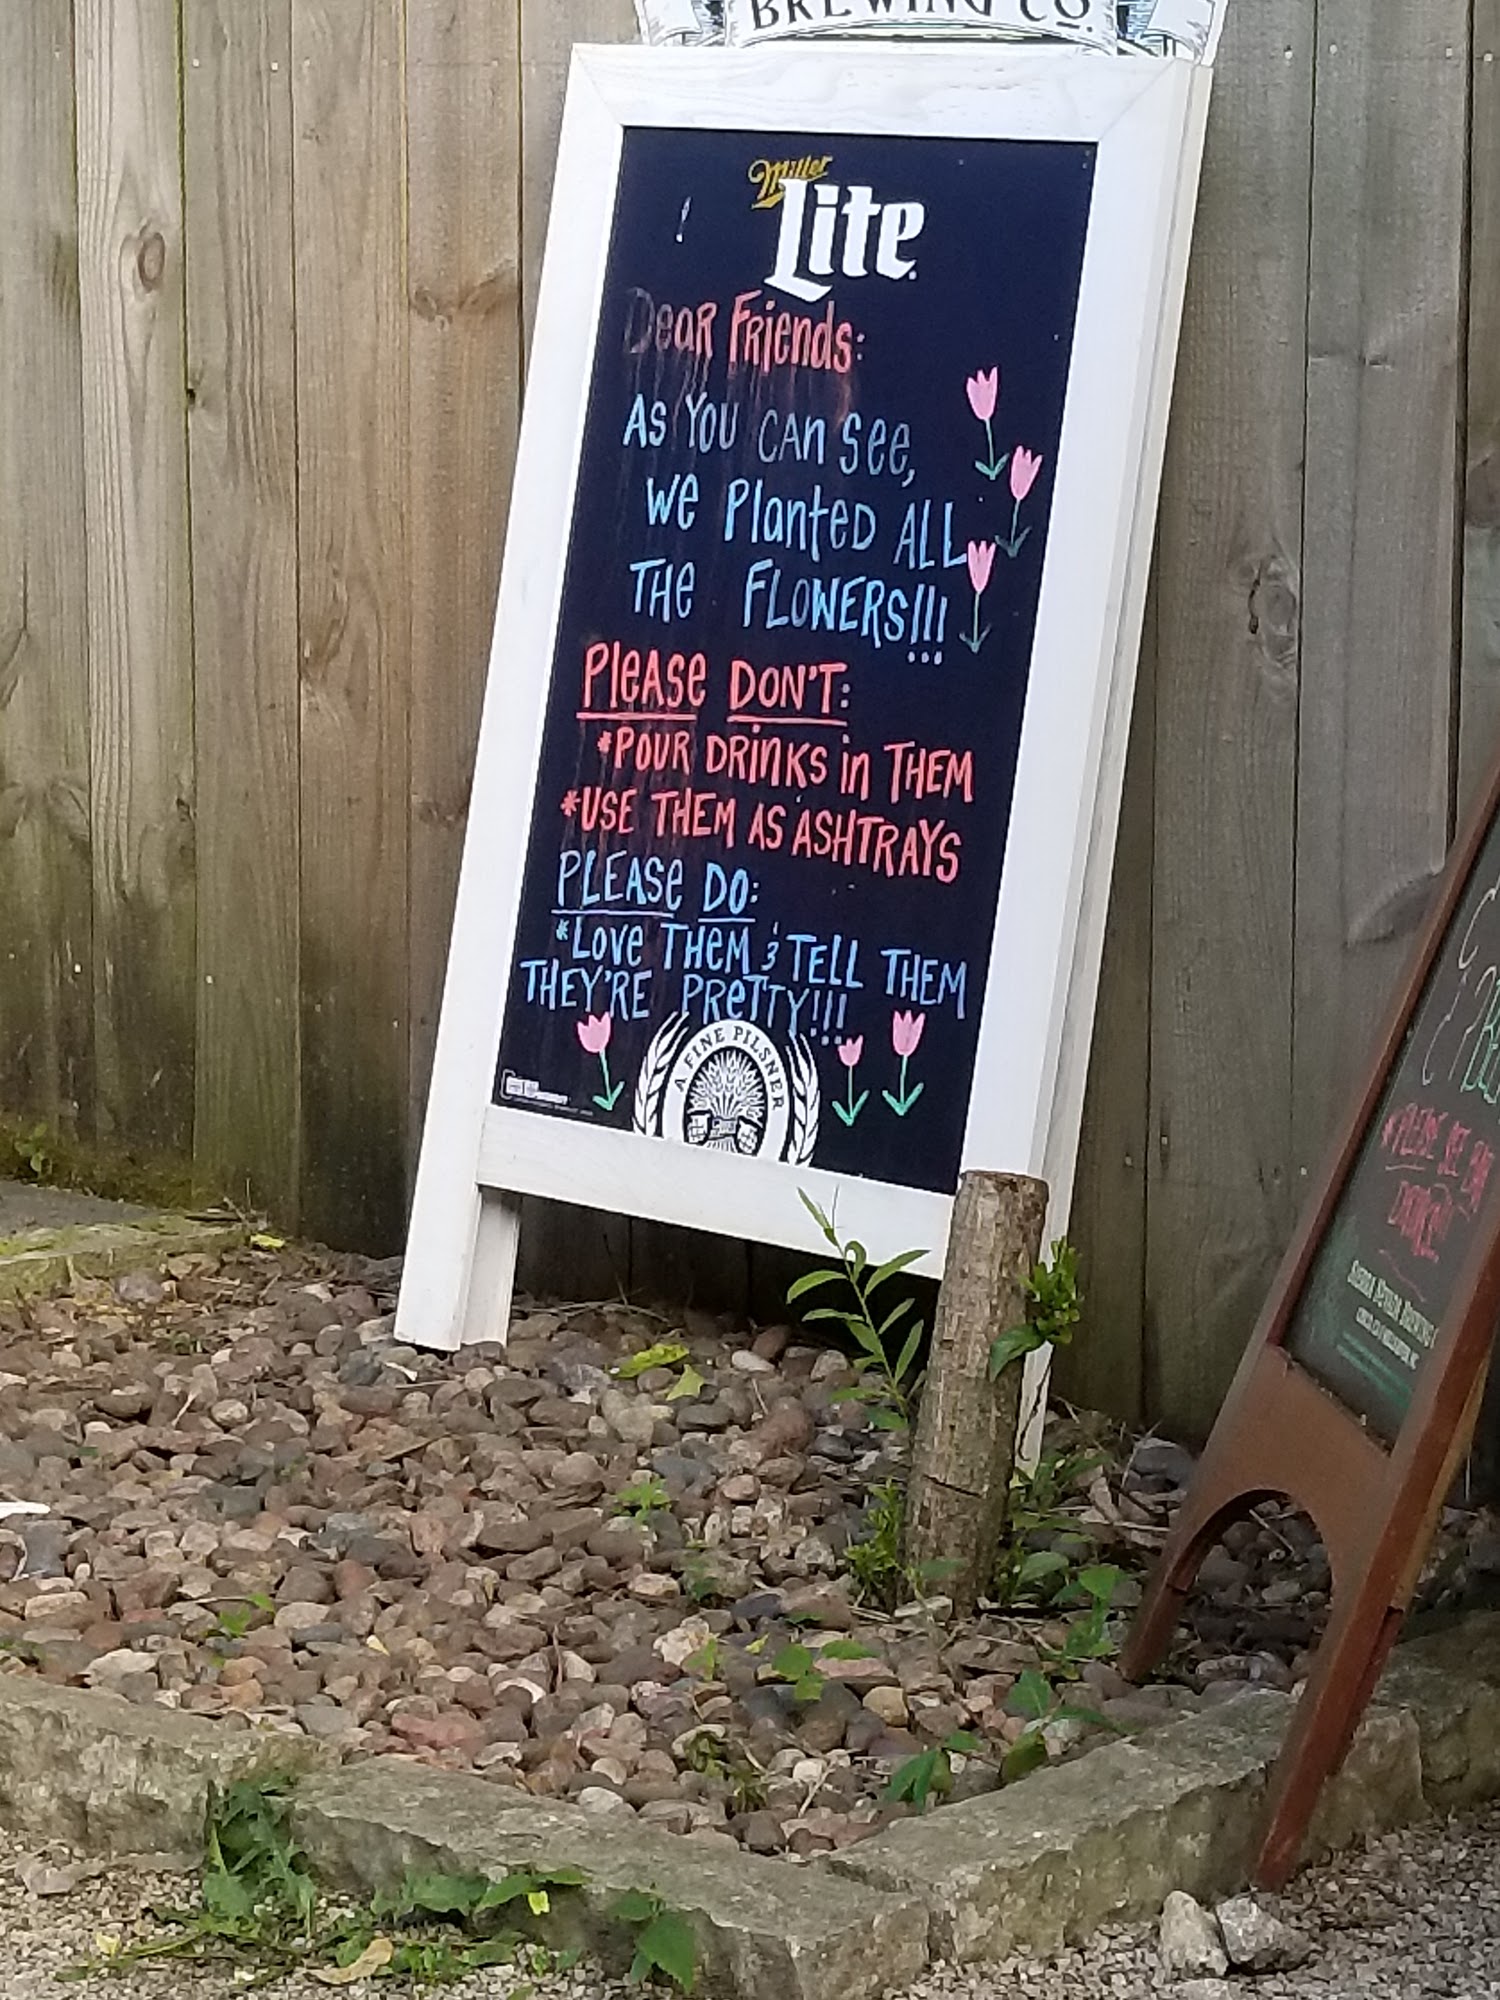 BREWING CO.
Miller
Lite
Dear Friends:
As You can see,
we Planted ALL
THe FLOWERS!!!
PleAse DON'T:
*POUR DRinKS in THEM
*USE THEM AS ASHTRAYS
PLEASe DO:
*Love THeM & TELL THEM
THEY'RE PReTTY!!!
A FINE PILSNER
*PLEASE SEE
SIERRA NEVADA BREWING